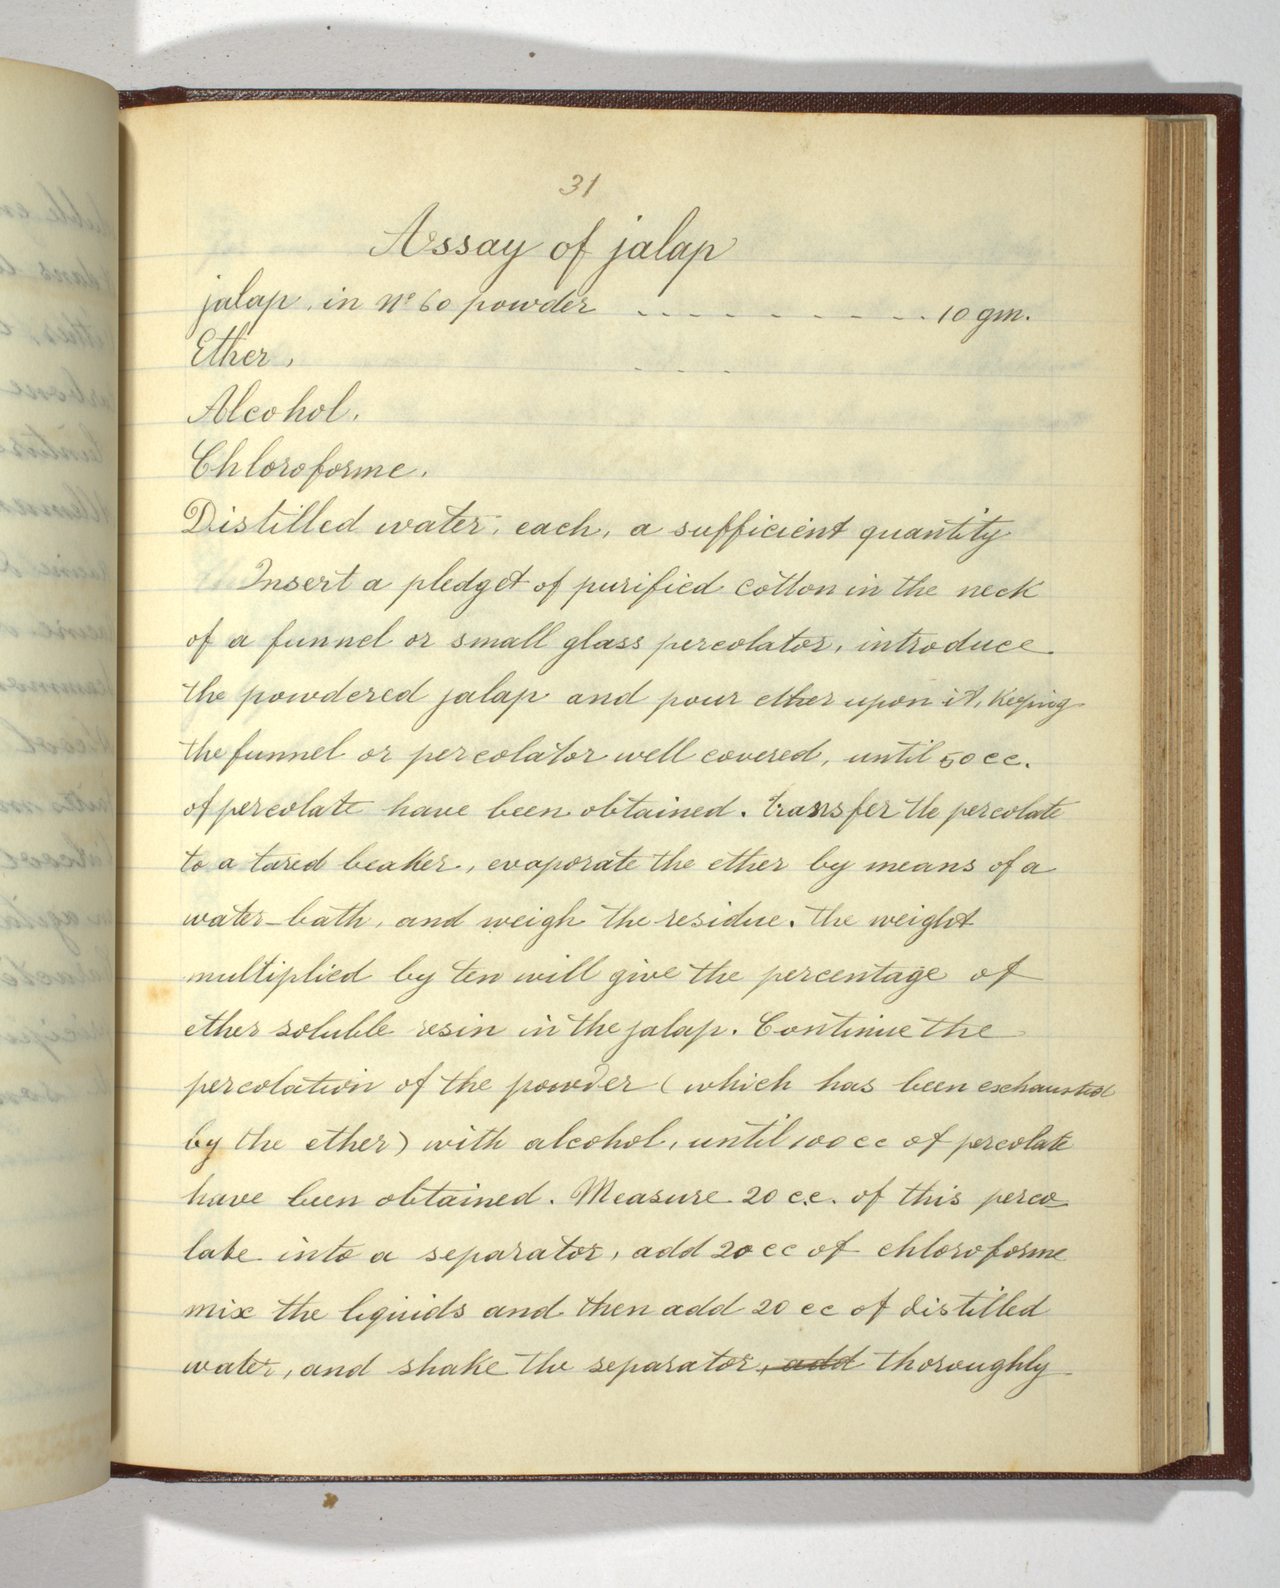 31
Assay of jalap
jalap, in Nº 60 powder - - - - - - - - - 10 gm.
Ether,
Alcohol,
Chloroforme,
Distilled water, each, a sufficient quantity
Insert a pledget of purified cotton in the neck
of a funnel or small glass percolator, introduce
the powdered jalap and pour ether upon it, keping
the funnel or percolator well covered, until 50 cc.
of percolate have been obtained. transfer the percolate
to a tared beaker, evaporate the ether by means of a
water-bath, and weigh the residue. the weight
multiplied by ten will give the percentage of
ether soluble resin in the jalap. Continue the
percolation of the powder (which has been exchausted
by the ether) with alcohol, until 100 cc of percolate
have been obtained. Measure 20 c.c. of this perco
late into a separator, add 20 cc of chloroforme
mix the liquids and then add 20 cc of distilled
water, and shake the separator, add thoroughly